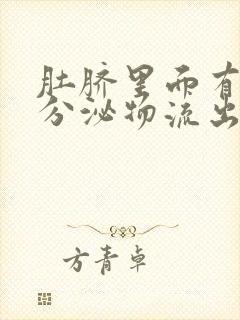 肚脐里面有
分泌物流出
方青卓